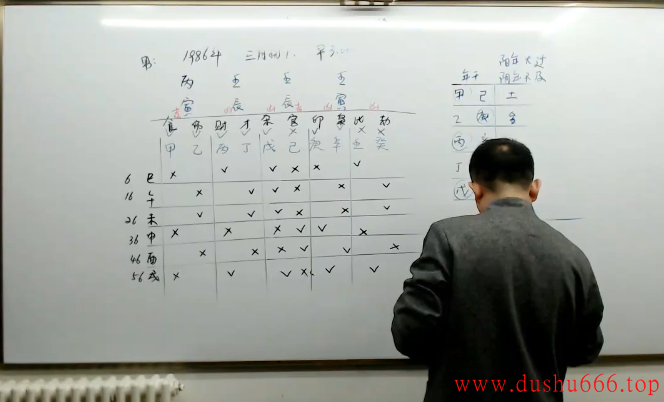 男: 198624 三月
丙 壬 壬 壬
寅 辰 辰 寅
食 伤 财 才 杀 官 印 枭 比 劫
甲 乙 丙 丁 戊 己 庚 辛 壬 癸
6 巳 × √ √ × × √
16 午 × √ √ × × √
26 未 × √ √ × × √
36 申 × × × √ √ ×
46 酉 × × × √ √ ×
56 戌 × √ √ × √ √
年干 阳年大过
甲 己 土
乙
丙
丁
戊
www.dushu666.top